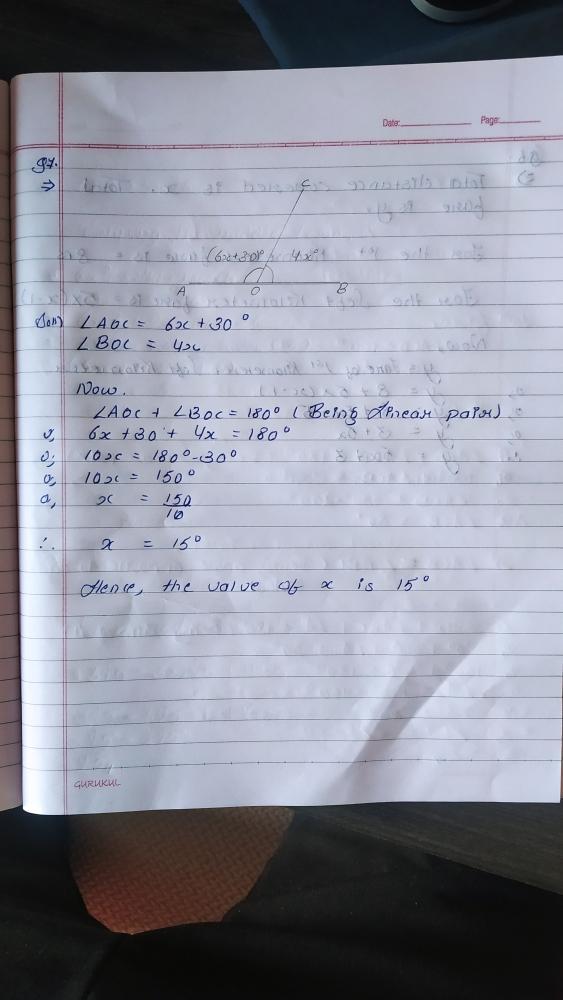 Date: Page:
Q7.
⇒
C
(6x+30)° 4x°
A O B
Soln) ∠AOC = 6x + 30°
∠BOC = 4x
Now.
∠AOC + ∠BOC = 180° (Being Linear pair)
o, 6x + 30 + 4x = 180°
o, 10x = 180° - 30°
o, 10x = 150°
o, x = 150
10
∴ x = 15°
Hence, the value of x is 15°
GURUKUL